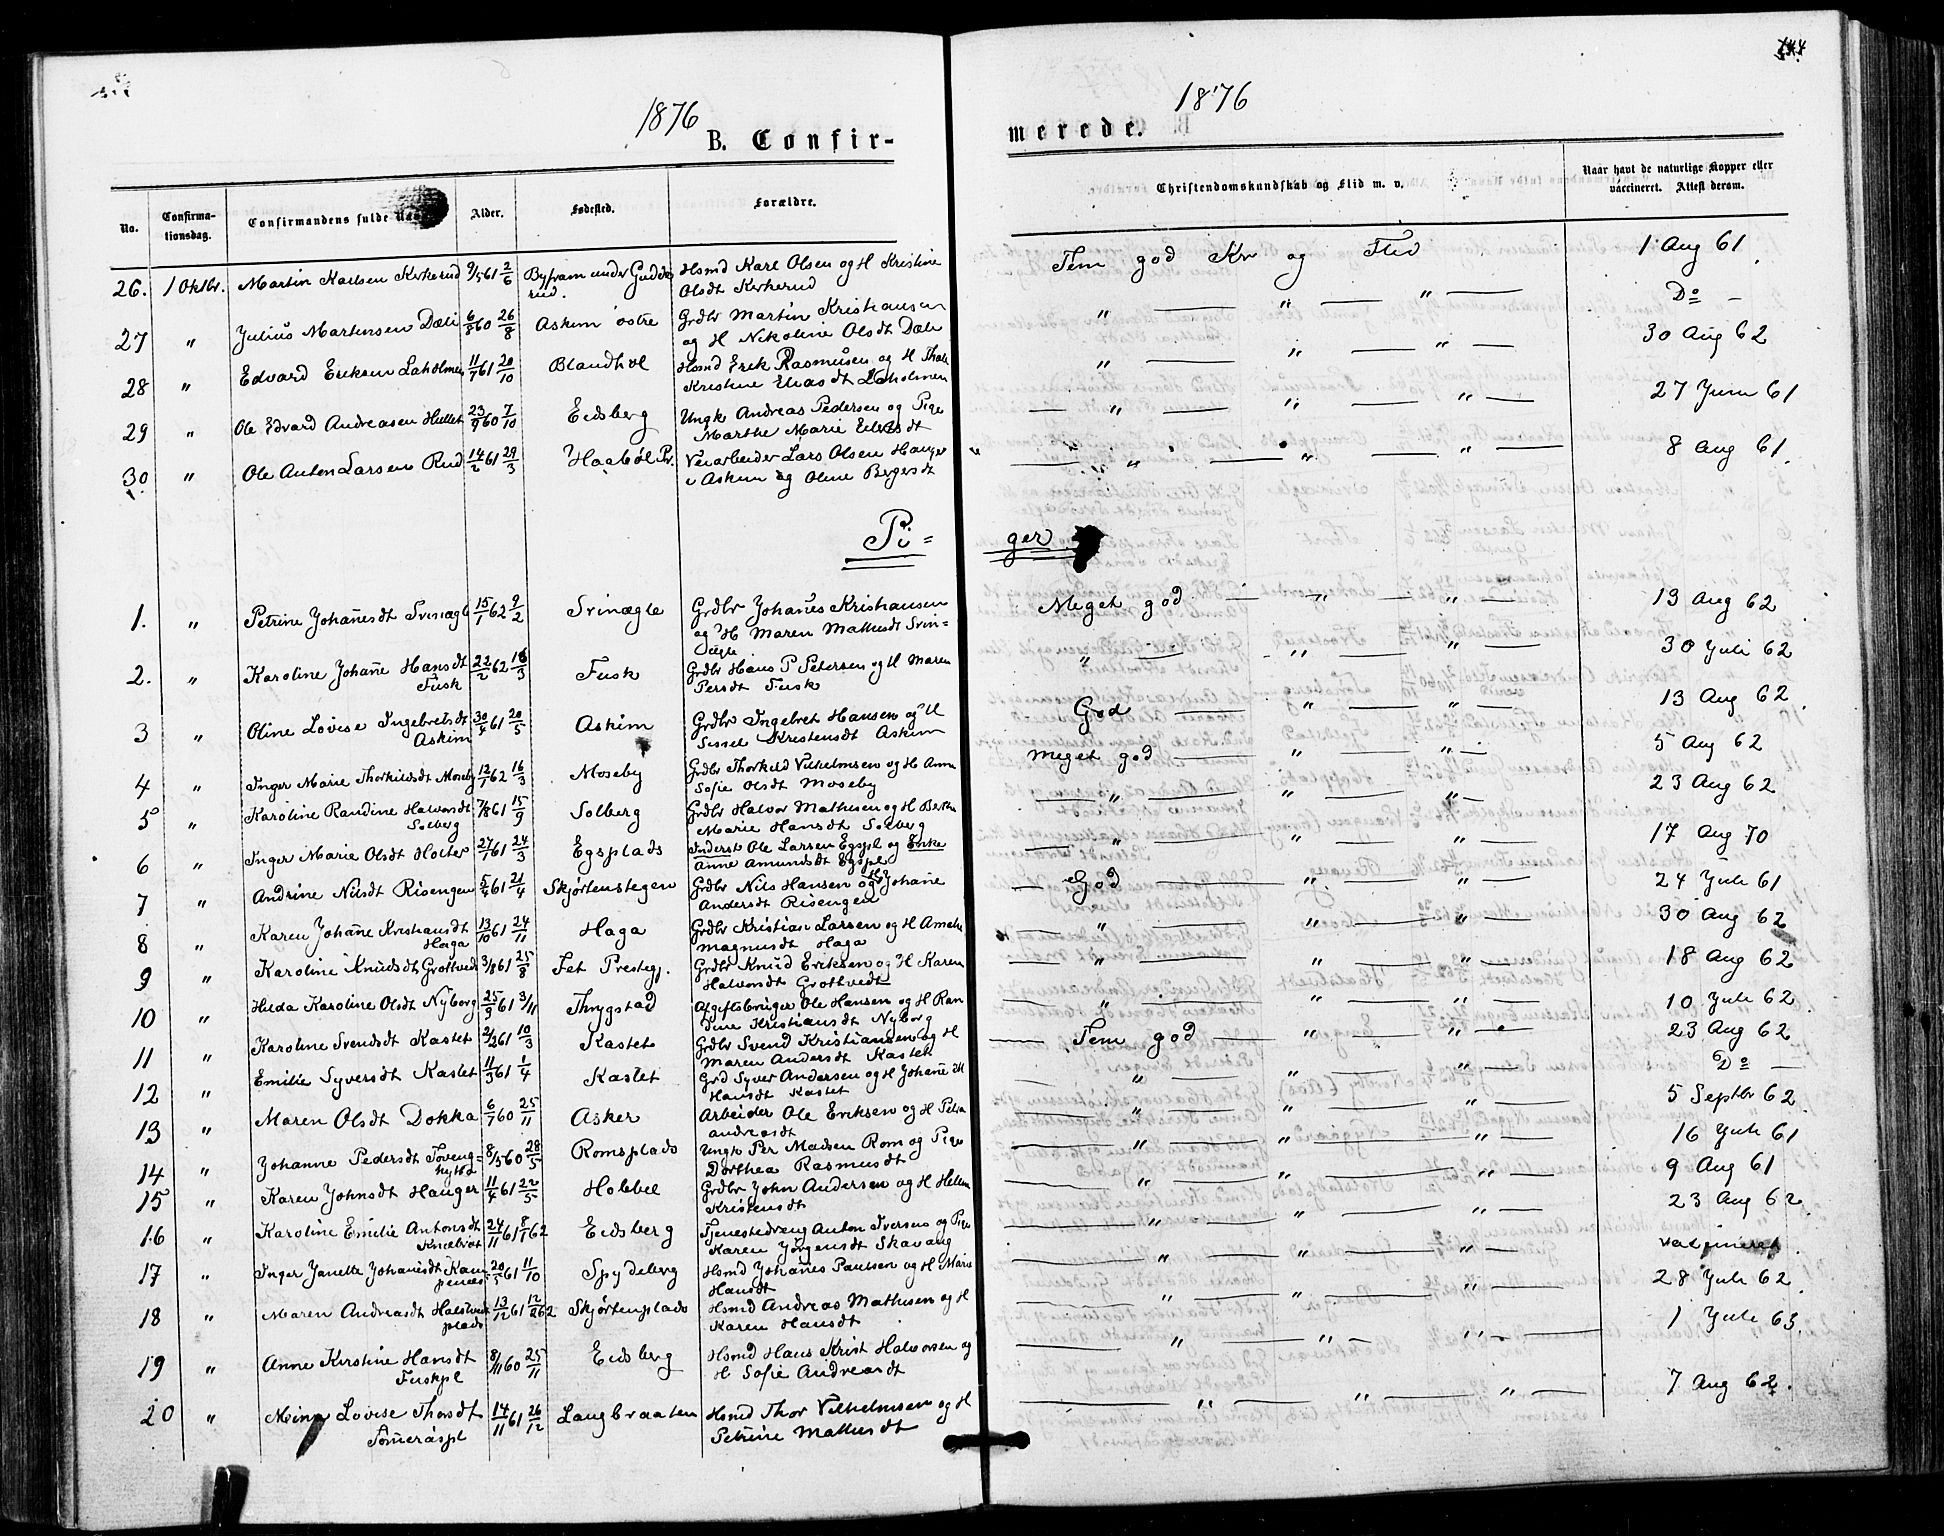 1876
B. Confir-
No. Confirmationsdag. Confirmandens fulde Alder. Fødested. Forældre.
26. 1 Oktbr. Martin Karlsen Kirkerud 9/5 61 2/6 under Gudde rud. Hsmd Karl Olsen og H Kristine
Olsdt Kirkerud
27 " Julius Martinsen Dæli 6/8 60 26/8 Askim østre Grdbr Martin Kristiansen
og H Nikoline Olsdt Dæli
28 " Edvard Eriksen Laholmen 11/7 61 20/10 Hsmd Erik Rasmusen og H
Kristine Eliasdt Laholmen
29 " Ole Edvard Andreasen Hullet 23/9 60 7/10 Eidsberg Ungk Andreas Pedersen og Pige
Marthe Marie
30 " Ole Anton Larsen Rud 14/2 61 29/3 Haabøl Pr. Veiarbeider Lars Olsen Hauger
i Askim og Oline Bergersdt
Pi=
1. " Petrine Johañesdt Svinægle 15/1 62 9/2 Svinægle Grdbr Johañes Kristiansen
og H Maren Mathisdt Svin=
ægle
2. " Karoline Johañe Hansdt 22/2 62 /3 Fusk Grdbr Hans P Petersen og H Maren
Fusk Persdt Fusk
3 " Oline Lovise Ingebretsdt 30/4 61 20/5 Askim Grdbr Ingebret Hansen og H
Askim Sissel Kristensdt Askim
4 " Inger Marie Thorkildsdt Moseby 12/1 62 16/3 Moseby Grdbr Thorkild Vilhelmsen og H Anne
Sofie Olsdt Moseby
5 " Karoline Randine Halvorsdt 7/8 61 15/9 Solberg Grdbr Halvor Mathisen og H Berthe
Solberg Marie Hansdt Solberg
6 " Inger Marie Olsdt Holter 27/1 61 24/3 Egsplads Inderst Ole Larsen Egspl og Enke
Anne Amundsdt Egspl
7 " Andrine Nilsdt Risengen 5/4 61 21/4 Skjørtenstegen Grdbr Nils Hansen og H Johañe
Andersdt Risengen
8 " Karen Johañe Kristiansdt 13/10 61 24/11 Haga Grdbr Kristian Larsen og H Amalie
Haga Magnusdt Haga
9 " Karoline Knudsdt Grotvedt 3/8 61 25/8 Fet Prestegj. Grdbr Knud Eriksen og H Karen
Halvorsdt Grothvedt
10 " Hilda Karoline Olsdt Nyborg 25/9 61 3/11 Thrygstad Afgiftsbruger Ole Hansen og H Ran
dine Kristiansdt Nyborg
11 " Karoline Svendsdt Kastet 2/2 61 10/3 Kastet Grdbr Svend Kristiansen og H
Maren Andersdt Kastet
12 " Emilie Syversdt Kastet 11/3 61 1/4 Kastet Grd Syver Andersen og H Johañe M
Hansdt Kastet
13 " Maren Olsdt Dokka 6/7 60 25/11 Asker Arbeider Ole Eriksen og H Petra
Andreasdt
14 " Johanne Pedersdt 8/5 60 28/5 Romsplads Ungk Per Madsen Rom og Pige
Dorthea Rasmusdt
15 " Karen Johnsdt Hauger 11/4 61 22/5 Grdbr John Andersen og H Helene
Kristensdt
16 " Karoline Emilie Antonsdt 24/11 61 8/1 62 Eidsberg Tjenestedreng Anton Iversen og Pige
Karen Jørgensdt Skavang
17 " Inger Janette Johañesdt Kam 20/5 61 11/10 Spydeberg Hsmd Johañes Paulsen og H Marie
Hansdt
18 " Maren Andreasdt 13/12 61 12/2 62 Skjørtenplads Hsmd Andreas Mathisen og H
plads Karen Hansdt
19 " Anne Kirstine Hansdt 8/11 60 25/11 Eidsberg Hsmd Hans Krist Halvorsen og
Fuskpl H Sofie Andreasdt
20 " Mina Lovise Thorsdt 14/11 61 26/12 Langbraaten Hsmd Thor Vilhelmsen og H
Petrine Mathisdt
144
1876
merede.
Christendomskundskab og Flid m. v. Naar havt de naturlige Kopper eller
vaccineret. Attest derom.
Tem god Kr og Flid 1 Aug 61.
" " " Do
" " " 30 Aug 62
" " " 27 Juni 61
" " " 8 Aug 61.
ger
Meget god " " 13 Aug 62
" " " 30 Juli 62
God " " 13 Aug 62
Meget god " " 5 Aug 62
" " " 23 Aug 62
" " " 17 Aug 70
God " " 24 Juli 61
" " " 30 Aug 62
" " " 18 Aug 62
" " " 10 Juli 62
Tem god " " 23 Aug 62
" " " Do
" " " 5 Septbr 62
" " " 16 Juli 61
" " " 9 Aug 61
" " " 23 Aug 62
" " " vaccineret.
" " " 28 Juli 62
" " " 1 Juli 63.
" " " 7 Aug 62.